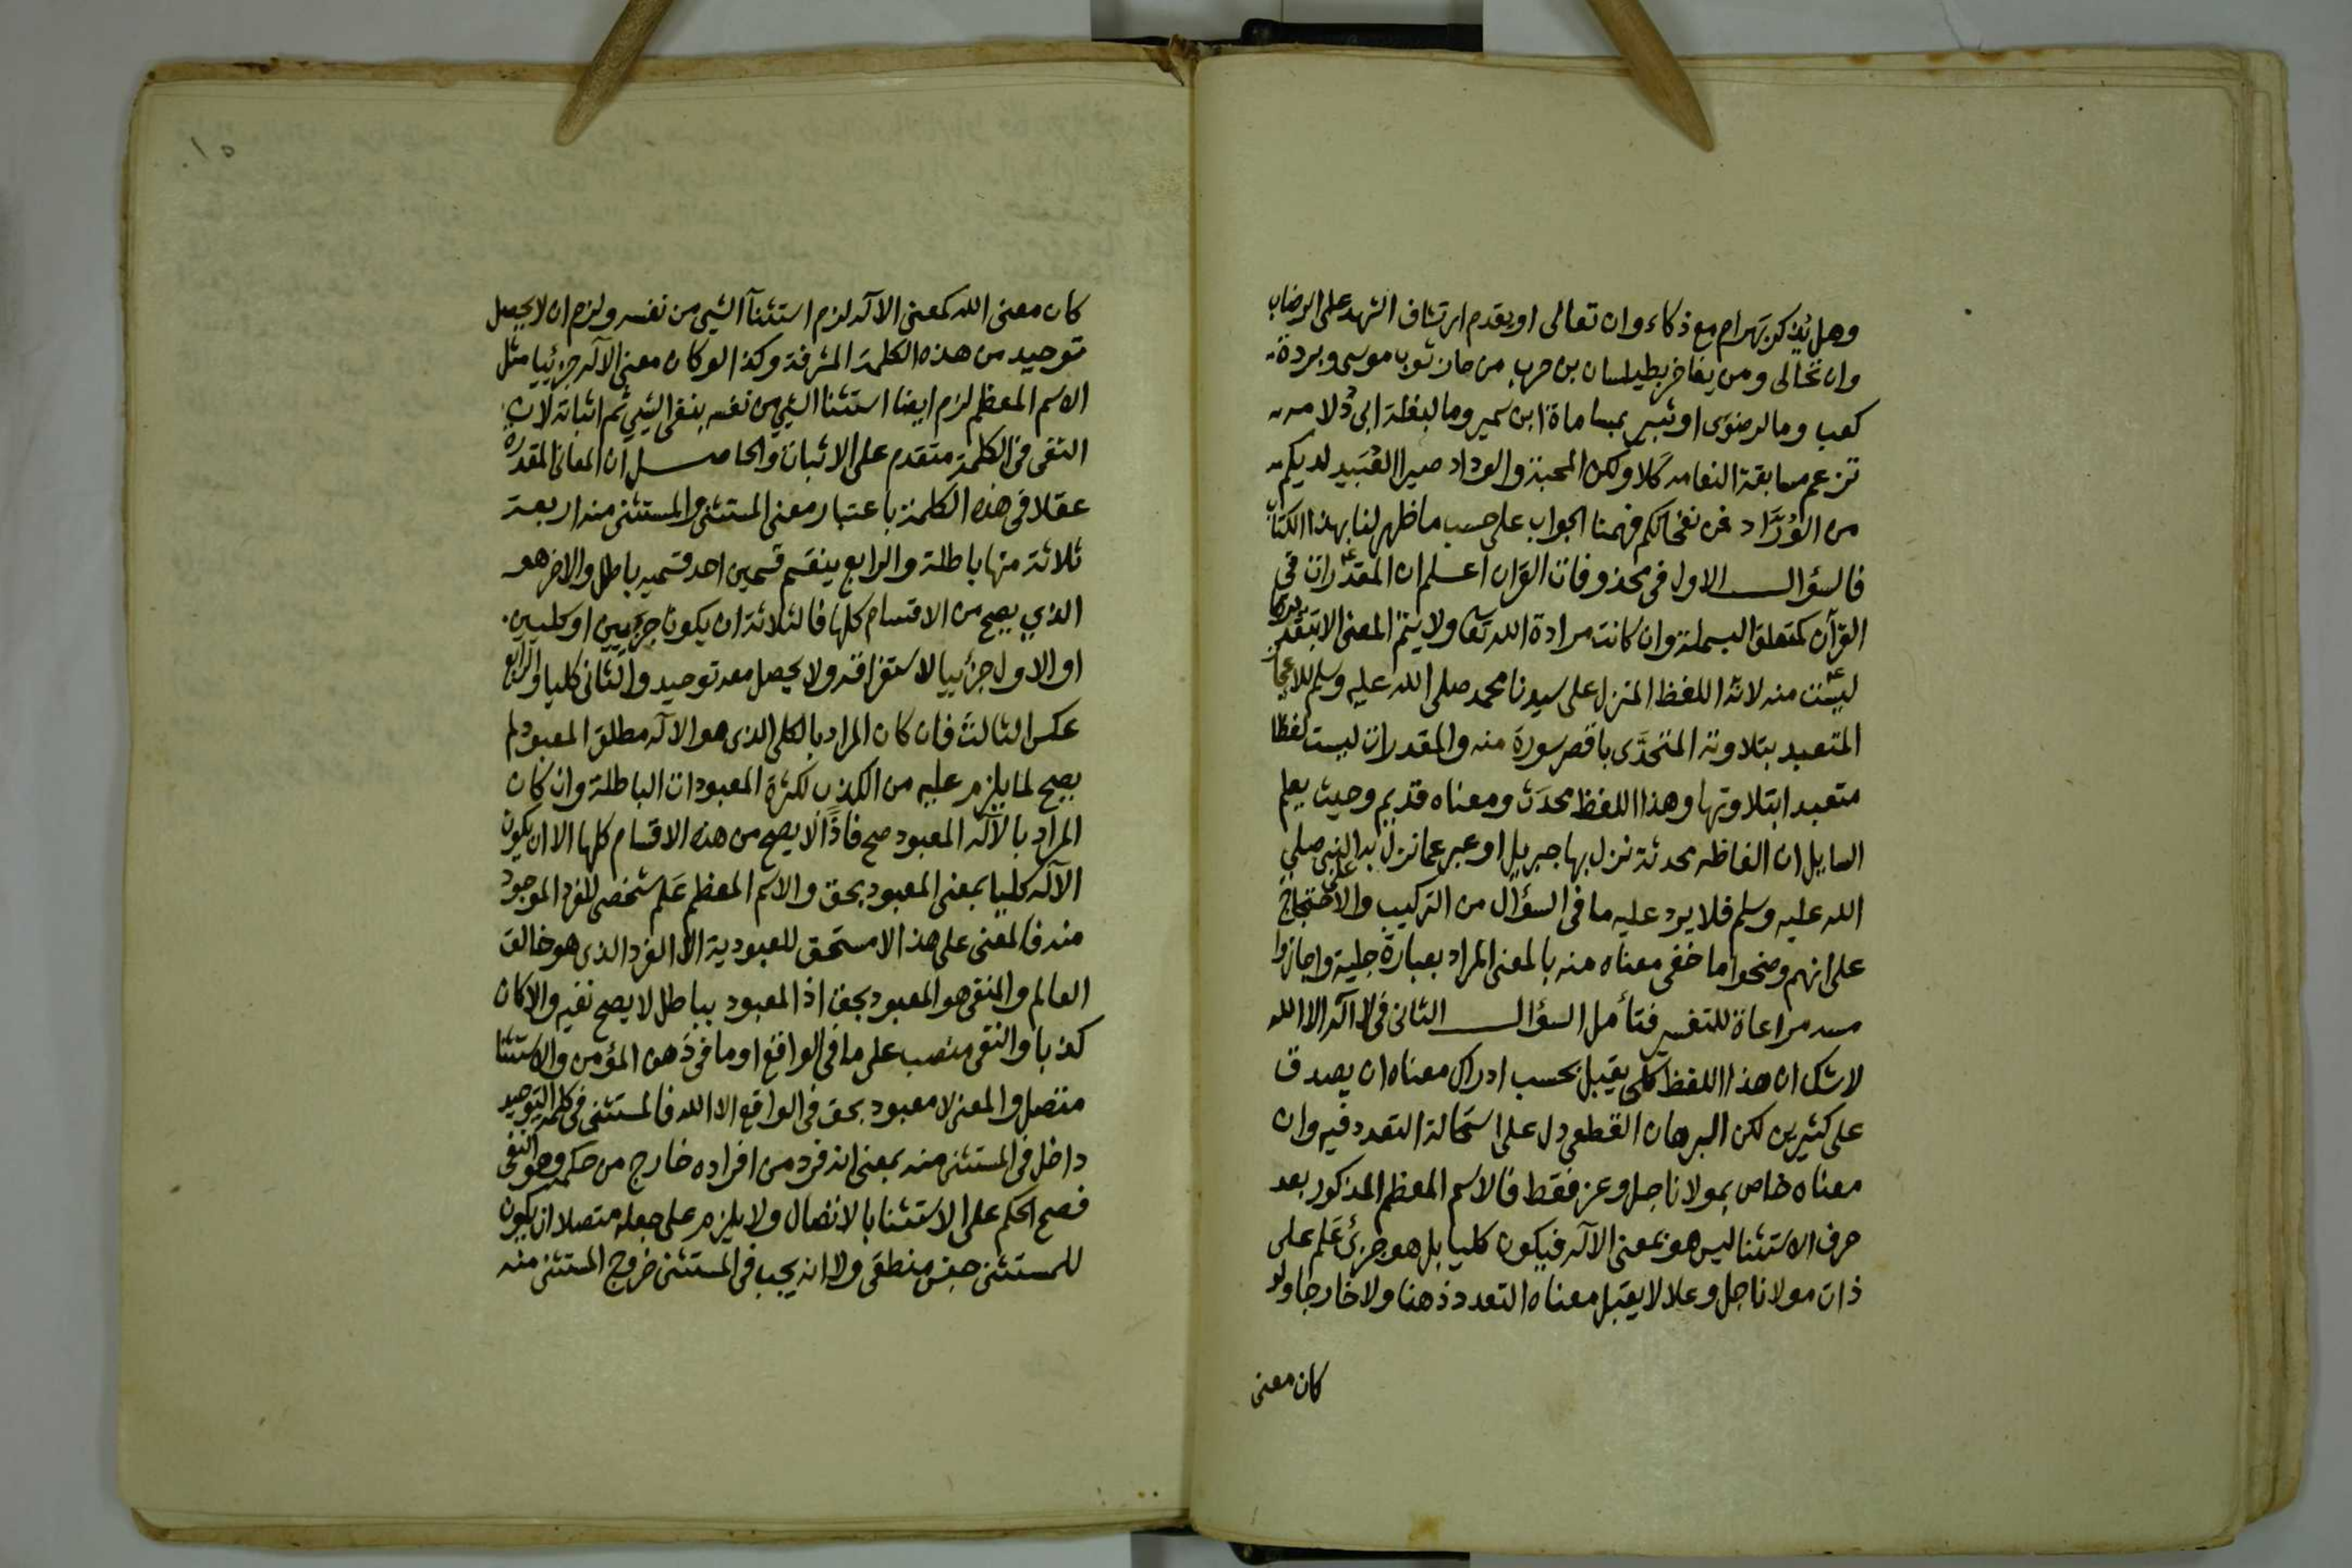 وهل يذكر بهرام مع ذكاء وان تعالى او يقدم ارتشاف الشهد على الرضاب
وان تحالى ومن يفاخر بطيلسان بن حرب من حاز ثوب موسى وبردة
كعب وما لرضوى او ثبير بمساماة ابن سمير وما لبغلة ابى دُلامه
تزعم مسابقة النعامه كلا ولكن المحبة والوداد صيرا العُبَيد لديكم
من الوُرَّاد فمن نفحاتكم فهمنا الجواب على حسب ما ظهر لنا بهذا الكتاب
فالسؤال الاول فى محذوفات القرآن اعلم ان المقدرات فى
القرآن كمتعلق البسملة وان كانت مرادة الله تعا ولا يتم المعنى الا بتقديرها
ليست منه لانه اللفظ المنزل على سيدنا محمد صلى الله عليه وسلم للاعجاز
المتعبد بتلاوته المتحدَّى باقصر سورة منه والمقدرات ليست لفظا
متعبدا بتلاوتها وهذا اللفظ محدَث ومعناه قديم وحيث يعلم
السايل ان الفاظه محدثة نزل بها جبريل او عبر عما نزل به النبى صلي
الله عليه وسلم فلا يرد عليه ما فى السؤال من التركيب والاحتجاج
على انهم وضحوا ما خفى معناه منه بالمعنى المراد بعبارة جلية واجازوا
مده مراعاة للتفسير فتأمل السؤال الثانى فى لا اله الا الله
لا شك ان هذا اللفظ كلى يقبل بحسب ادراك معناه ان يصدق
على كثيرين لكن البرهان القطعى دل على استحالة التعدد فيه وان
معناه خاص بمولانا جل وعز فقط فالاسم المعظم المذكور بعد
حرف الاستثنا ليس هو بمعنى الآله فيكون كليا بل هو جزئ عَلم على
ذات مولانا جل وعلا لا يقبل معناه التعدد ذهنا ولا خارجا ولو
كان معنى
١٥
كان معنى الله كمعنى الآله لزم استثنآ الشي من نفسه ولزم ان لا يحصل
توحيد من هذه الكلمة المشرفة وكذا لو كان معنى الآله جزئيا مثل
الاسم المعظم لزم ايضا استثنا الشي من نفسه بنفى الشي ثم اثباته لان
النفى فى الكلمة متقدم على الاثبات والحاصل ان المعانى المقدرة
عقلا فى هذه الكلمة باعتبار معنى المستثنى والمستثنى منه اربعة
ثلاثة منها باطلة والرابع ينقسم قسمين احد قسميه باطل والاخر هو
الذي يصح من الاقسام كلها فالثلاثة ان يكونا جزئيين او كليين
او الاول جزئييا لاستغراقه ولا يحصل معه توحيد والثانى كليا والرابع
عكس الثالث فان كان المراد بالكلى الذى هو الآله مطلق المعبود لم
يصح لما يلزم عليه من الكذب لكثرة المعبودات الباطلة وان كان
المراد بالآله المعبود صح فاذًا لا يصح من هذه الاقسام كلها الا ان يكون
الآله كليا بمعنى المعبود بحق والاسم المعظم عَلم شخصى للفرد الموجود
منه فالمعنى على هذا لا مستحق للعبودية الا الفرد الذى هو خالق
العالم والمنفى هو المعبود بحق اذ المعبود بباطل لا يصح نفيه والا كان
كذبا والنفى منصب على ما فى الواقع او ما فى ذهن المؤمن والاستثنا
متصل والمعنى لا معبود بحق فى الواقع الا الله فالمستثنى فى كلمة التوحيد
داخل فى المستثنى منه بمعنى انه فرد من افراده خارج من حكمه وهو النفى
فصح الحكم على الاستثنا بالاتصال ولا يلزم على جعله متصلا ان يكون
للمستثنى جنس منطقى ولا انه يجب فى المستثنى خروج المستثنى منه